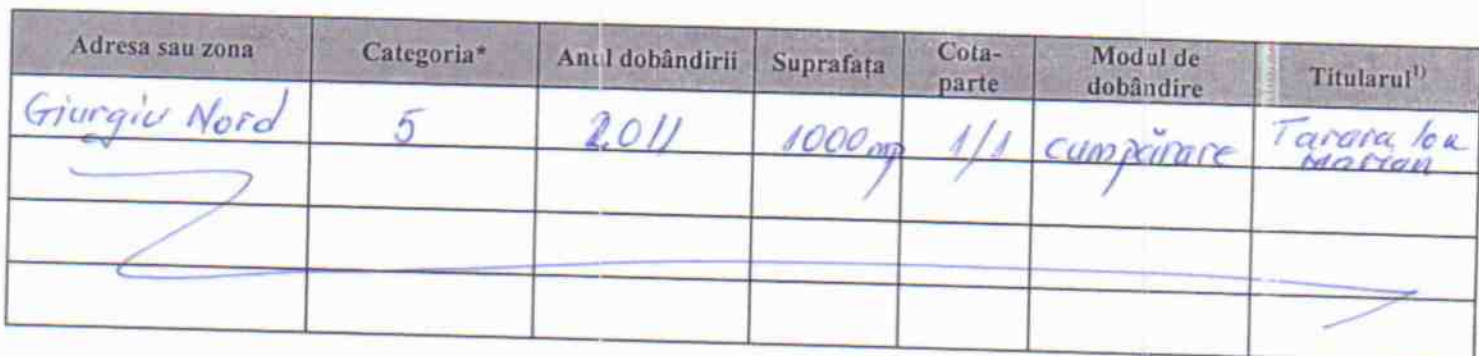 Adresa sau zona Categoria* Anul dobândirii Suprafața Cota-parte Modul de dobândire Titularul¹⁾
Giurgiu Nord 5 2011 1000 mp 1/1 cumpărare Tarara
Marian